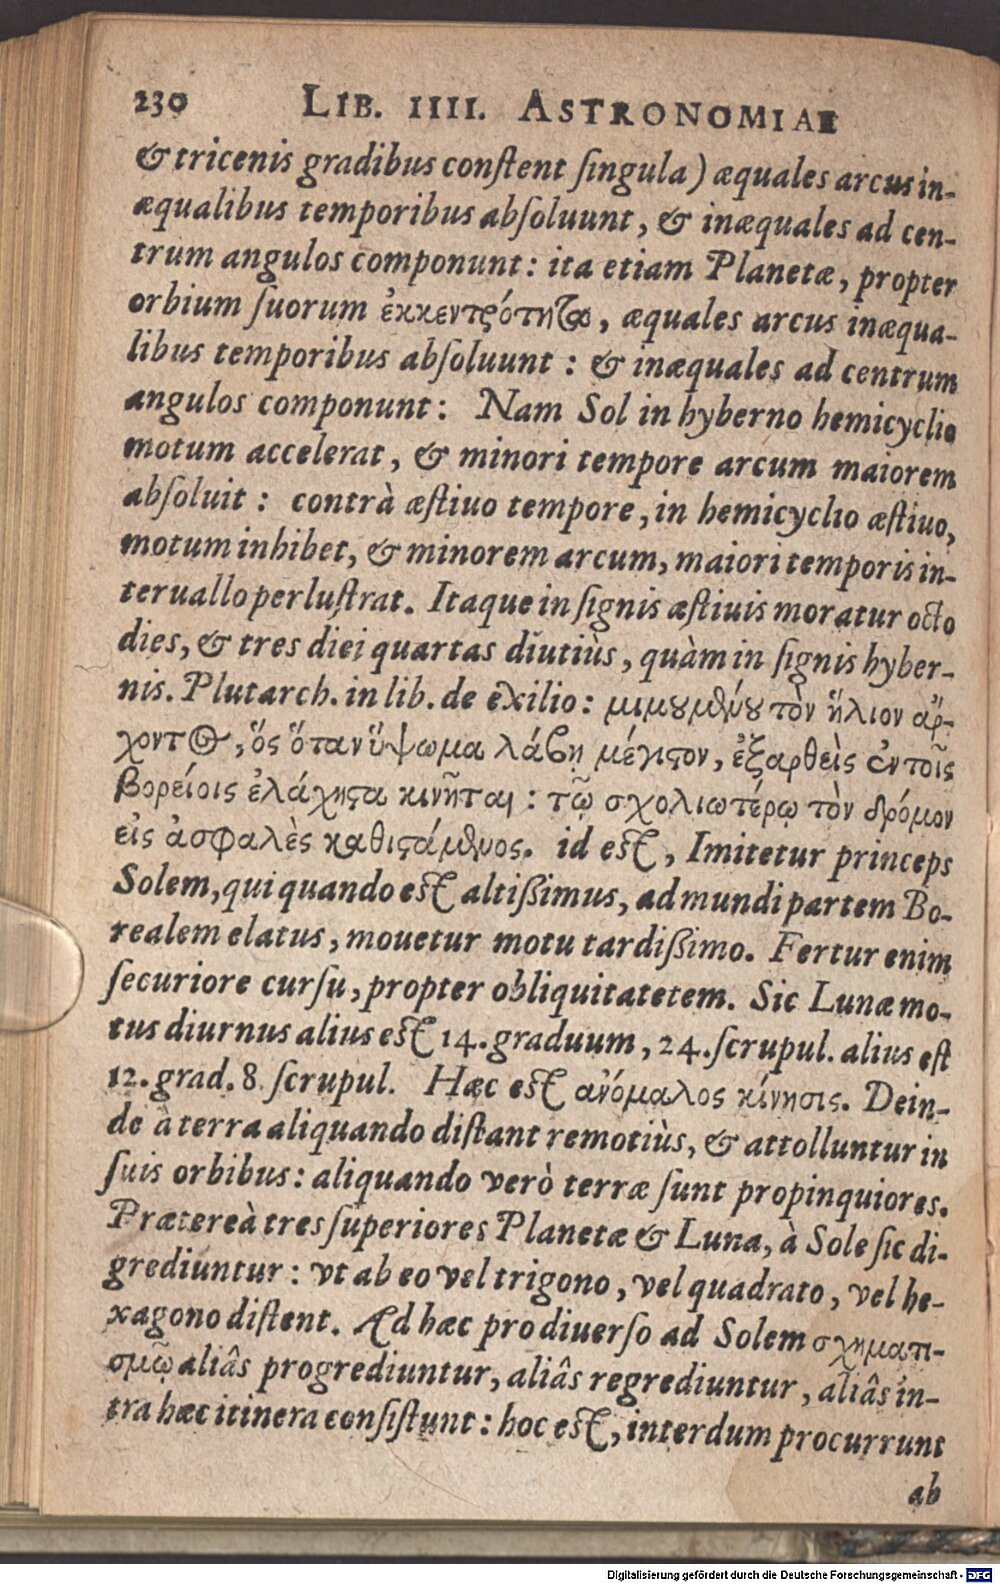 230 LIB. IIII. ASTRONOMIAE
& tricenis gradibus constent singula) æquales arcus in-
æqualibus temporibus absoluunt, & inæquales ad cen-
trum angulos componunt: ita etiam Planetæ, propter
orbium suorum ἐκκεντρότητα, æquales arcus inæqua-
libus temporibus absoluunt: & inæquales ad centrum
angulos componunt: Nam Sol in hyberno hemicyclio
motum accelerat, & minori tempore arcum maiorem
absoluit: contrà æstiuo tempore, in hemicyclio æstiuo,
motum inhibet, & minorem arcum, maiori temporis in-
teruallo perlustrat. Itaque in signis æstiuis moratur octo
dies, & tres diei quartas diutiùs, quàm in signis hyber-
nis. Plutarch. in lib. de exilio: μιμουμένου τὸν ἥλιον ἄρ-
χοντος, ὅς ὅταν ὕψωμα λάβῃ μέγιστον, ἐξαρθεὶς ἐν τοῖς
βορείοις ἐλάχιστα κινῆται: τῷ σχολιωτέρῳ τὸν δρόμον
εἰς ἀσφαλὲς καθιστάμενος. id est, Imitetur princeps
Solem, qui quando est altissimus, ad mundi partem Bo-
realem elatus, mouetur motu tardissimo. Fertur enim
securiore cursu, propter obliquitatetem. Sic Lunæ mo-
tus diurnus alius est 14. graduum, 24. scrupul. alius est
12. grad. 8. scrupul. Hæc est ἀνόμαλος κίνησις. Dein-
de à terra aliquando distant remotiùs, & attolluntur in
suis orbibus: aliquando verò terræ sunt propinquiores.
Prætereà tres superiores Planetæ & Luna, à Sole sic di-
grediuntur: vt ab eo vel trigono, vel quadrato, vel he-
xagono distent. Ad hæc pro diuerso ad Solem σχηματι-
σμῷ aliâs progrediuntur, aliâs regrediuntur, aliâs in-
tra hæc itinera consistunt: hoc est, interdum procurrunt
ab
Digitalisierung gefördert durch die Deutsche Forschungsgemeinschaft - DFG